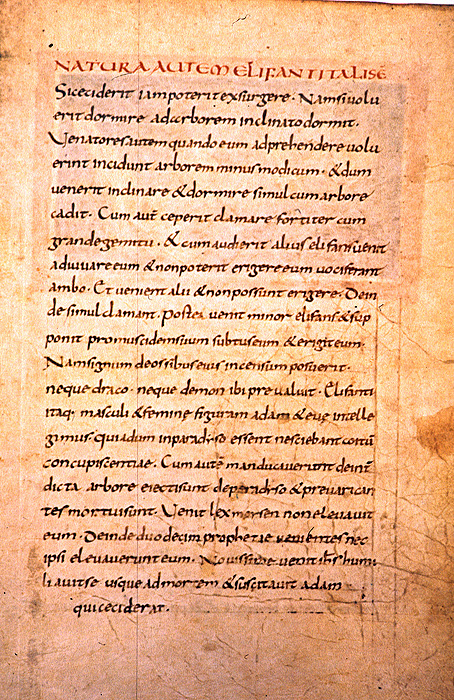 NATURA AUTEM ELIFANTI TALIS Ē
Si ceciderit iam poterit exsurgere · Nam si volu
erit dormire ad arborem inclinato dormit ·
Venatores autem quando eum adprehendere volu
erint incidunt arborem minus modicum · & dum
venerit inclinare & dormire simul cum arbore
cadit · Cum aut̄ ceperit clamare fortiter cum
grande gemitu · & cum audierit alius elifans venit
adiuvare eum & non poterit erigere eum vociferant
ambo · Et venient alii & non possunt erigere · Dein
de simul clamant · postea venit minor elifans & sup
ponit promuscidem suum subtus eum & erigit eum ·
Nam signum de ossibus eius incensum posuerit ·
neque draco · neque demon ibi prevaluit · Elifanti
itaq; masculi & femine figuram adam & eve intelle
gimus · qui a dum in paradyso essent nesciebant coitū
concupiscentiae · Cum autē manducaverunt de inter
dicta arbore eiecti sunt de paradyso & prevarican
tes mortui sunt · Venit lex morsen non elevavit
eum · Deinde duodecim prophetae venientes nec
ipsi elevaverunt eum · Novissime venit ihs humi
liavit se usque ad mortem & suscitavit adam
qui ceciderat ·